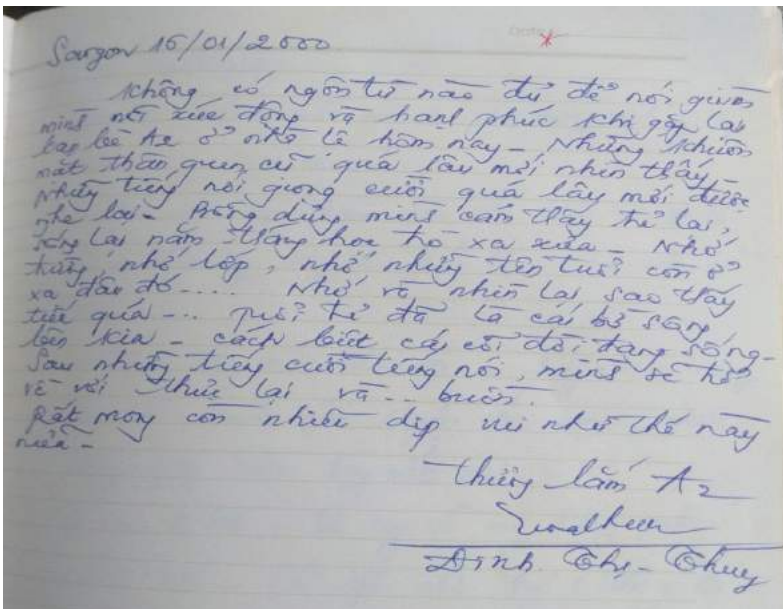 Saigon 16/01/2000
Không có ngôn từ nào đủ để nói giùm
mình nỗi xúc động và hạnh phúc khi gặp lại
bè A2 ở nhà Lê hôm nay - Những khuôn
mặt thân quen cũ quá lâu mới nhìn thấy,
những tiếng nói giọng cười quá lâu mới được
nghe lại - Bỗng dưng mình cảm thấy trẻ lại,
sống lại năm tháng học trò xa xưa - Nhớ
trường, nhớ lớp, nhớ những tên tuổi còn ở
xa đâu đó..... Nhớ và nhìn lại, sao thấy
tiếc quá... tuổi trẻ đã là cái bờ sông
bên kia - cách biệt cái cõi đời đang sống -
Sau những tiếng cười tiếng nói, mình sẽ trở
về với thực tại và... buồn.
Rất mong còn nhiều dịp vui như thế này
nữa -
Thương lắm A2
Đinh Thị - Thuy